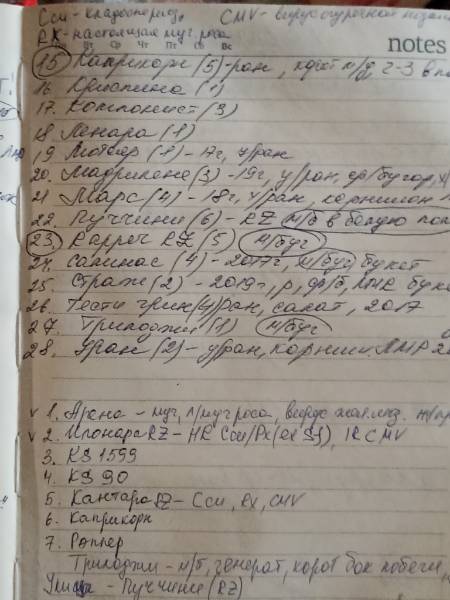 Ccu - кладоспориоз, CMV - вирус огуречной мозаи
Px - настоящая муч. роса
Вт Ср Чт Пт Сб Вс
notes
15. Каприкорн (5) - ран, м/д, 2-3 в п
16. Криспина (1)
17. Компонист (3)
18. Ленара (1)
19. (1) - 17г, у/ран
20. Мадрилене (3) - 19г, у/ран,
21. Марс (4) - 18г, у/ран, корнишон
22. Пуччини (6) - RZ м/б в белую
23. RZ (5) м/буг
24. Салинас (4) - 2017г, м/буг букет
25. Страж (2) - 2019г, р, ЛМР буке
26. Тести грин (4) ран, салат, 2017
27. Трилоджи (1) м/буг
28. Уран (2) - у/ран, корниш. ЛМР 20
v 1. - муч, л/муч роса, вирус жел. моз.
v 2. Илонара RZ - HR Ccu/Px (ex Sf), IR CMV
3. KS 1599
4. KS 90
5. Кантара RZ - Ccu, Px, CMV
6. Каприкорн
7. Роппер
Трилоджи - м/б, генерат, корот бок побеги,
- Пуччини (RZ)